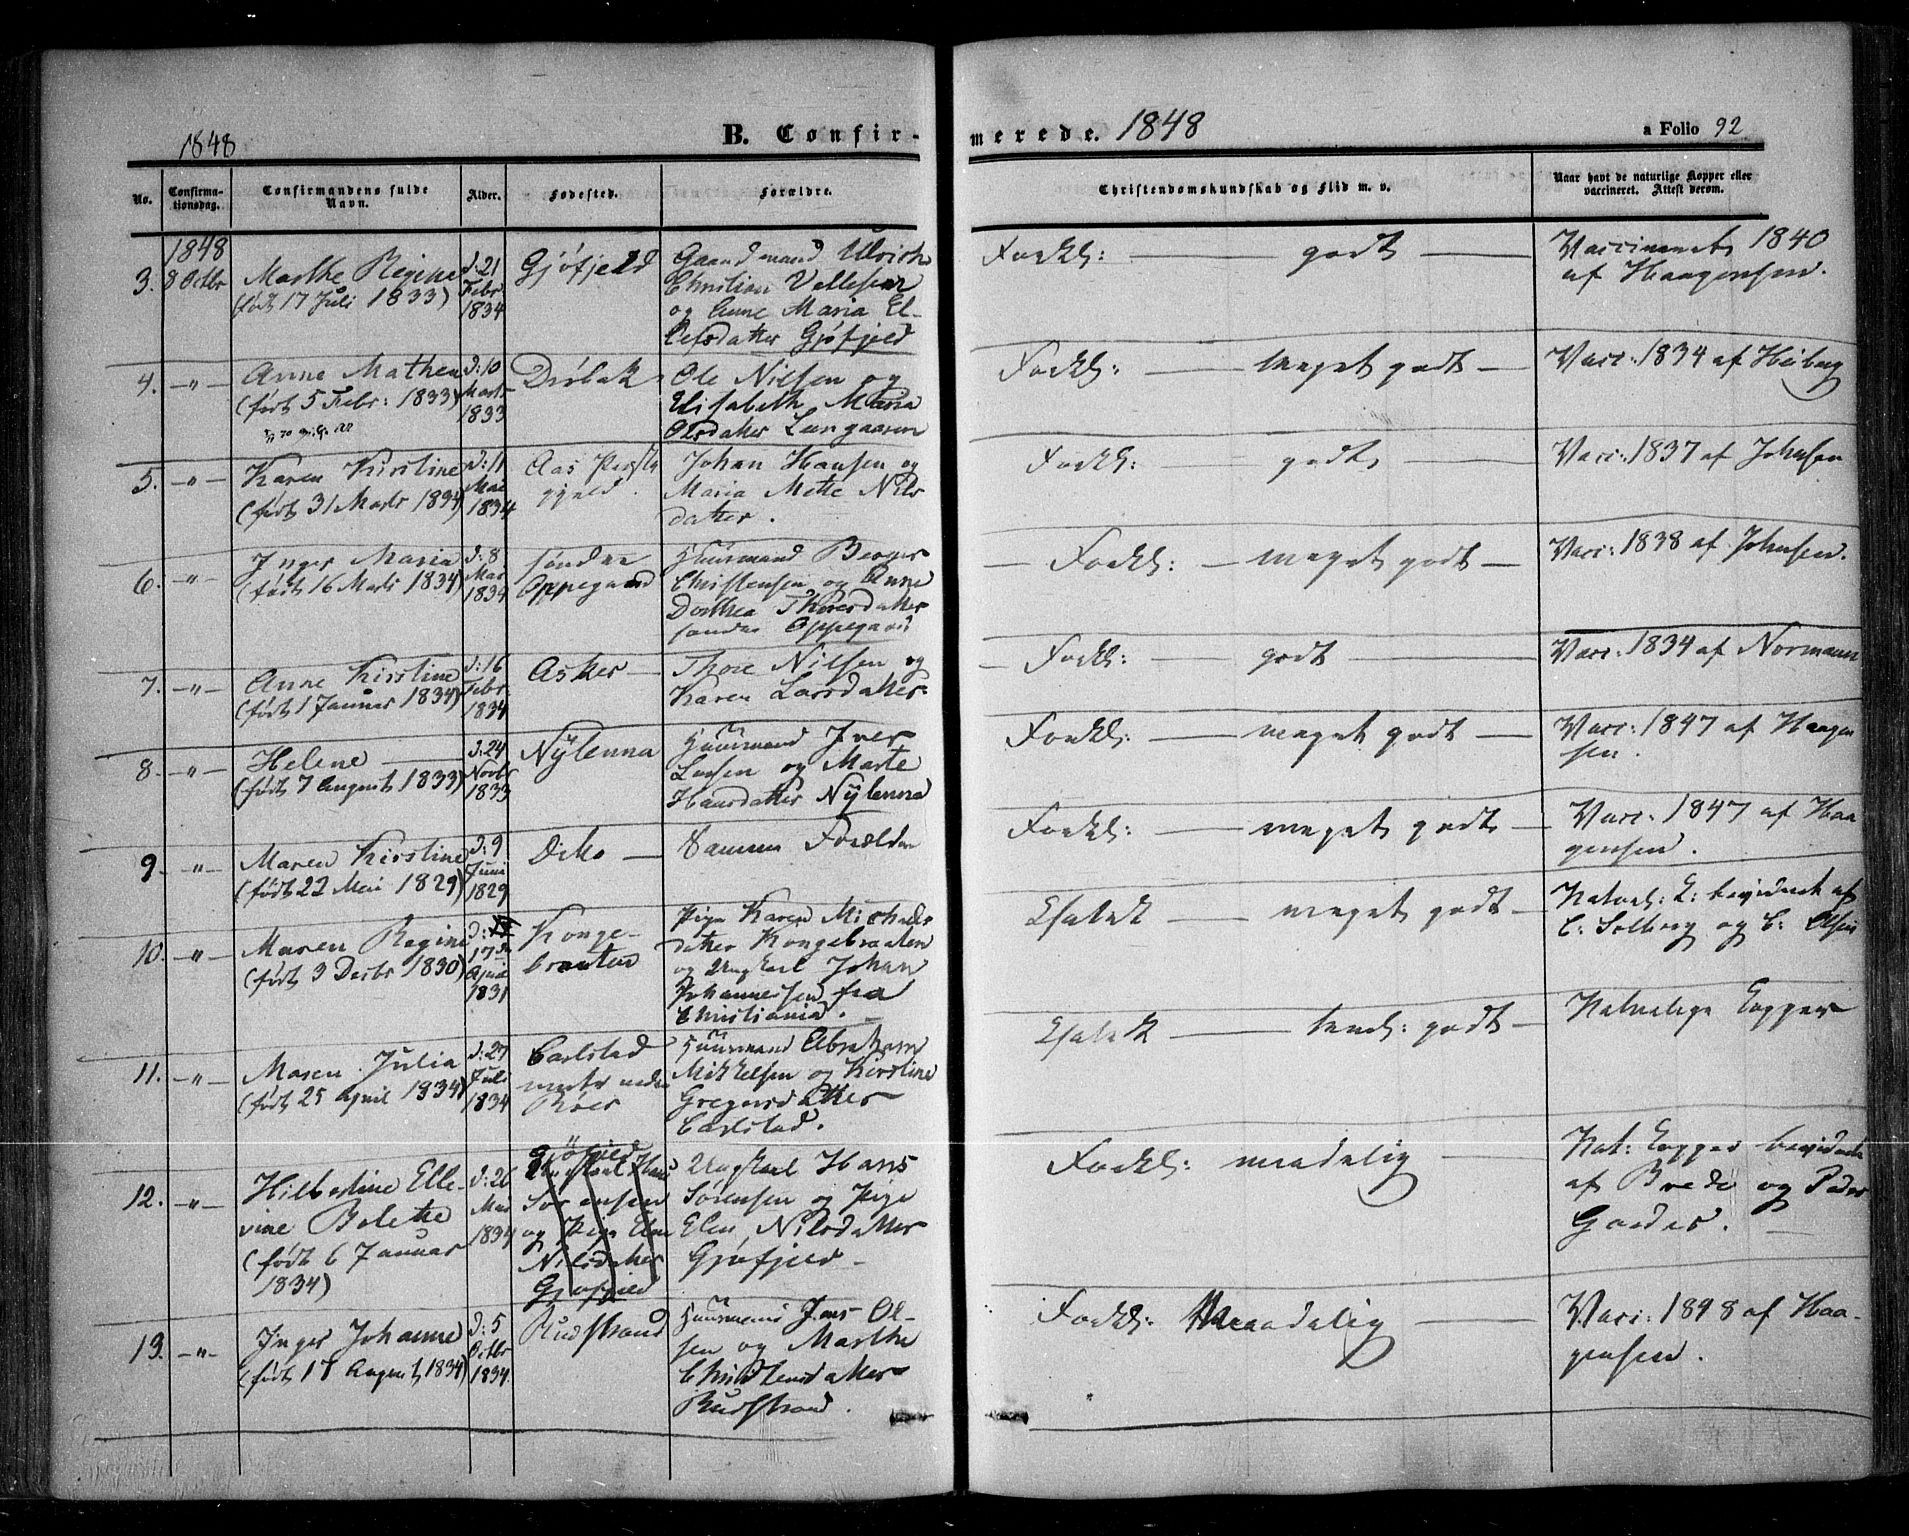 1848
B. Confir-
merede. 1848
a Folio 92
No.
Confirma-
tionsdag.
Confirmandens fulde
Navn.
Alder.
Fødested.
Forældre.
Christendomskundskab og Flid m. v.
Naar havt de naturlige Kopper eller
vaccineret. Attest derom.
1848
3. 8 Octbr Marthe Regine
(født 17 Juli 1833)
d: 21
Febr
1834
Gjøfjeld
Gaardmand Ulrich
Christian
og Anne Maria El-
lefsdatter Gjøfjeld
Forkl: — godt — Vaccineret 1840
af Haagensen.
4. —"— Anne Mathea
(født 5 Febr: 1833)
d: 10
Marts
1833
Drøbak
Ole Nilsen og
Elisabeth Maria
Olsdatter
Forkl: — meget godt — Vacc: 1834 af Heiberg
5. —"— Karen Kirstine
(født 31 Marts 1834)
d: 11
Mai
1834
Aas Præste
gjeld.
Johan Hansen og
Maria Mette Nils
datter.
Forkl: — godt — Vacc: 1837 af Johnsen
6. —"— Inger Maria
(født 16 Marts 1834)
d: 8
Mai
1834
søndre
Oppegaard
Huusmand Berger
Christensen og Anne
Dorthea Thoresdatter
søndre Oppegaard
Forkl: — meget godt — Vacc: 1838 af Johnsen.
7. —"— Anne Kirstine
(født 1 Januar 1834)
d: 16
Febr
1834
Asker —
Thore Nilsen og
Karen Larsdatter
Forkl: — godt — Vacc: 1834 af Normann
8. —"— Helene —
(født 7 August 1833)
d: 24
Novbr
1833
Nylenna
Huusmand Iver
Larsen og Marte
Hansdatter Nylenna
Forkl: — meget godt — Vacc: 1847 af Haagen
sen.
9. —"— Maren Kirstine
(født 22 Mai 1829)
d: 9
Juni
1829
Dito —
Samme Forældre
Forkl: — meget godt — Vacc: 1847 af Haa
gensen.
10. —"— Maren Regine
(født 3 Decbr 1830)
d:
17de
April
1831
Konge-
braaten
Pige Karen Michels
datter Kongebraaten
og Ungkarl Johan
Johannessen fra
Christiania.
— meget godt — Naturl: K: bevidnet af
C: Solberg og C: Olsen
11. —"— Maren Julia
(født 25 April 1834)
d: 27
Juli
1834
Carlstad
Røer
Huusmand Abraham
Mikkelsen og Kirstine
Gregersdatter
Carlstad.
— temel: godt — Naturlige Kopper
12. —"— Hilbertine Elle-
vine Bolette
(født 6 Januar
1834)
d: 26
Mai
1834
Gjøfjeld
Ungkarl Hans
Sørensen
og Pige Elen
Nilsdatter
Gjøfjeld
Ungkarl Hans
Sørensen og Pige
Elen Nilsdatter
Gjøfjeld —
Forkl: maadelig — Nat: Kopper bevidnet
af Brede og Peder
13. —"— Inger Johanne
(født 17 August 1834)
d: 5
Octbr
1834.
Rudstrand
Huusmand Jens Ol-
sen og Marthe
Christensdatter
Rudstrand.
Forkl: Maadelig — Vacc: 1848 af Haa-
gensen.